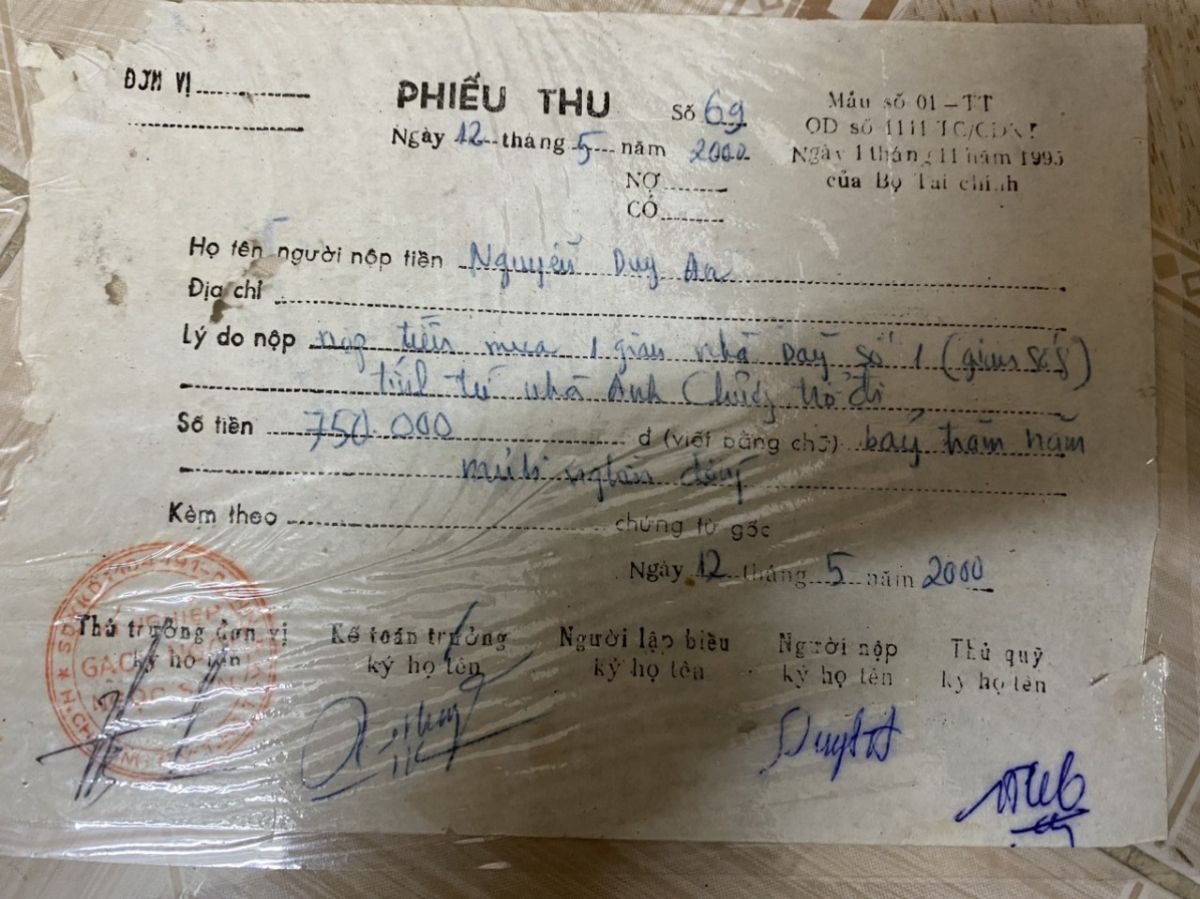 ĐƠN VỊ
PHIẾU THU
Số 69
Mẫu số 01 - TT
Ngày 12 tháng 5 năm 2000
QD số 1141 TC/CDKT
Ngày 1 tháng 11 năm 1995
của Bộ Tài chính
NỢ
CÓ
Họ tên người nộp tiền Nguyễn Duy An
Địa chỉ
Lý do nộp nộp tiền mua 1 gian nhà Dãy số 1 (gian số 5)
tính từ nhà Anh Chứ trở đi
Số tiền 750.000 đ (viết bằng chữ) bảy trăm năm
mươi nghìn đồng
Kèm theo chứng từ gốc
Ngày 12 tháng 5 năm 2000
Thủ trưởng đơn vị
ký họ tên
Kế toán trưởng
ký họ tên
Người lập biểu
ký họ tên
Người nộp
ký họ tên
Thủ quỹ
ký họ tên
XÍ NGHIỆP
GẠCH NGÓI